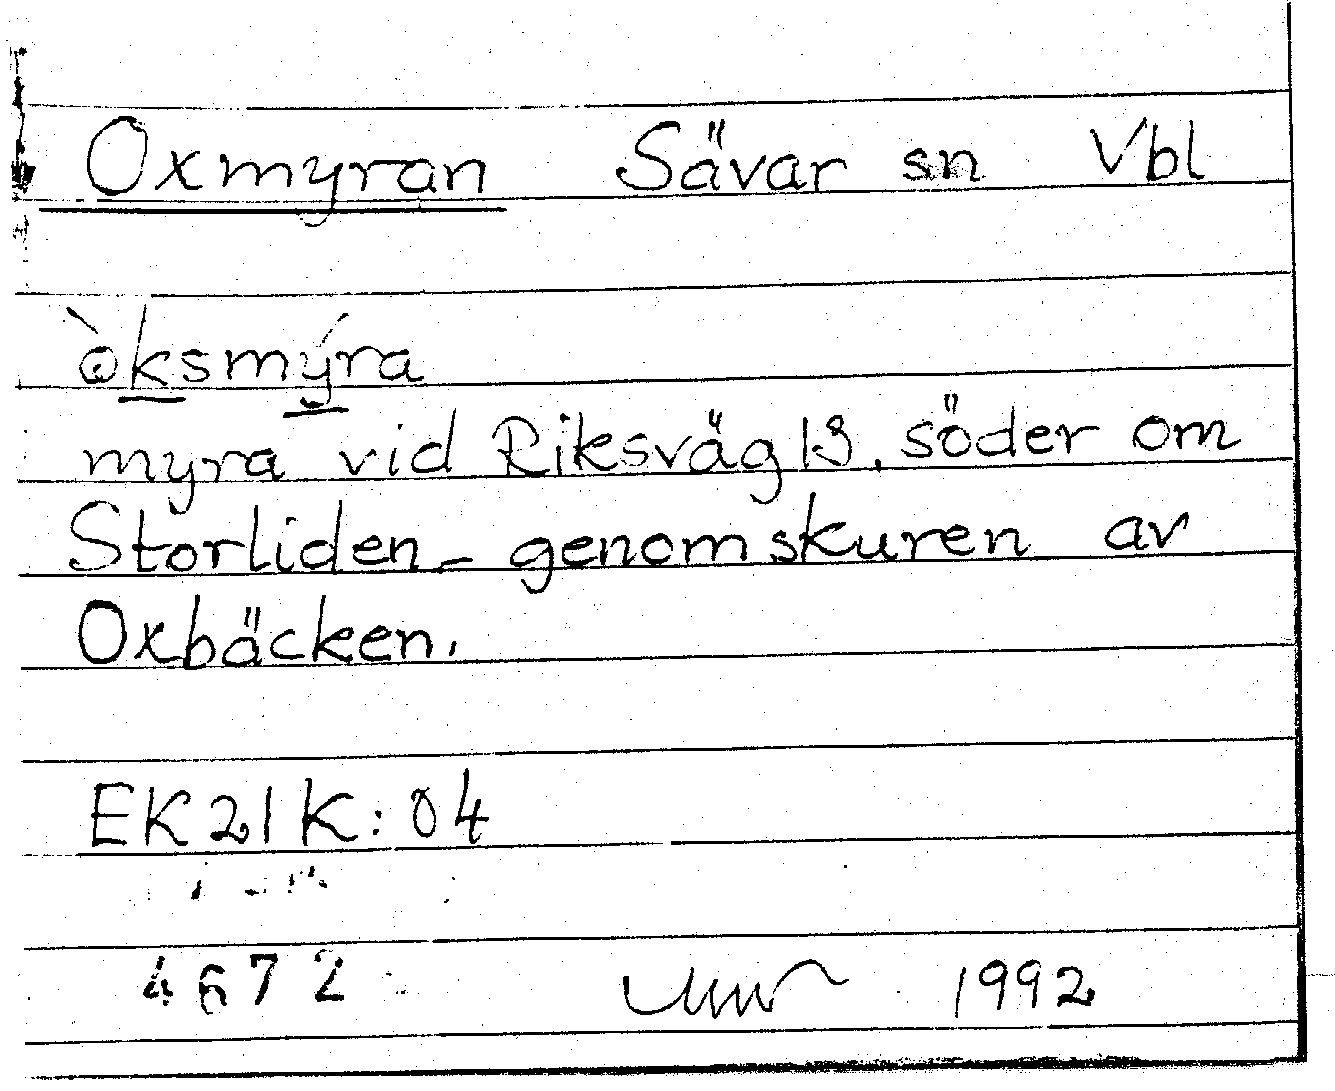 Oxmyran Sävar sn Vbl
òksmýra
myra vid Riksväg 13, söder om
Storliden – genomskuren av
Oxbäcken.
EK21K:04
4672 1992